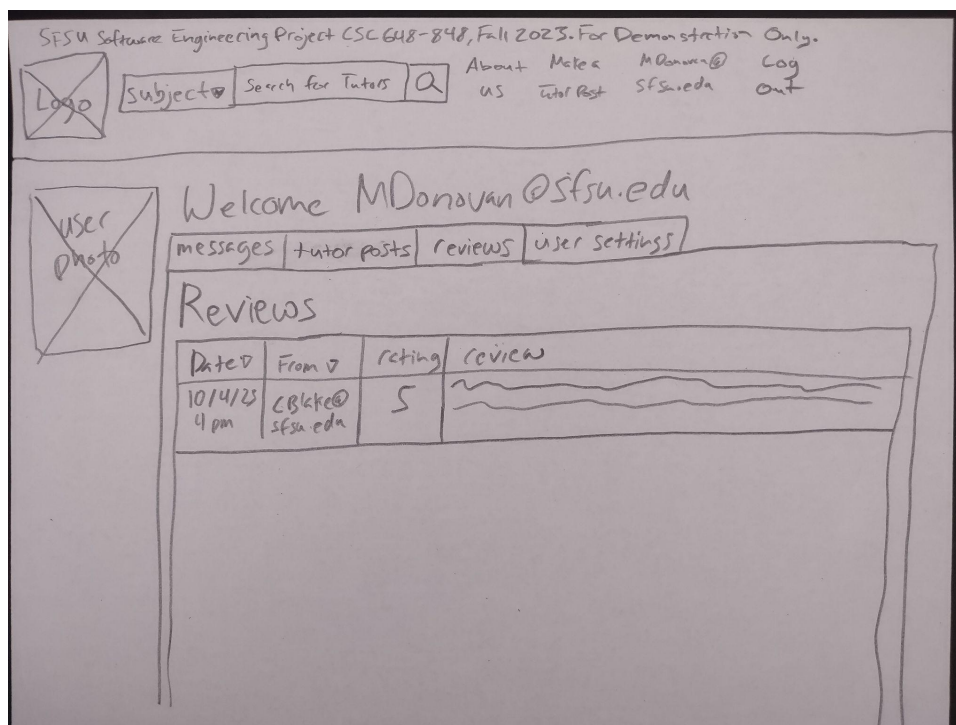 SFSU Software Engineering Project CSC 648-848, Fall 2023. For Demonstrtion Only.
Logo
Subject
Search for Tutors
About
us
Make a
Tutor Post
MDonovan@
sfsu.edu
Log
out
user
photo
Welcome MDonovan@sfsu.edu
messages tutor posts reviews user settings
Reviews
Date From rating review
10/4/23
4 pm
CBlake@
sfsu.edu
5